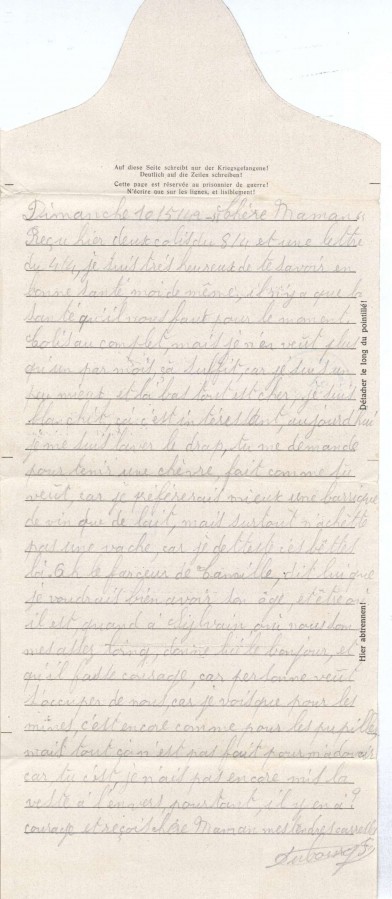 Auf diese Seite schreibt nur der Kriegsgefangene!
Deutlich auf die Zeilen schreiben!
Cette page est réservée au prisonnier de guerre!
N'écrire que sur les lignes, et lisiblement!
Dimanche 10/5/42 Chère Maman
Reçu hier deux colis du 8/4 et une lettre
du 4/4, je suis très heureux de te savoir en
bonne santé moi de même, il n'y a que la
santé qu'il nous faut pour le moment.
Colis au complet, mais je n'en veut plus
qu'un par mois, ça suffit car je suis un
peu mieux et là bas tout est cher, je suis
ça c'est intéressant, aujourd'hui
je me suis laver le drap, tu me demande
pour tenir une chèvre, fait comme tu
veut, car je préférerai mieux une barrique
de vin que de lait, mais surtout n'achette
pas une vache, car je déteste ces bêttes
là, le farceur de dit lui que
je voudrait bien avoir son âge et être où
il est quand à Sylvain où nous som
mes assez loing, donne lui le bonjour, et
qu'il fasse courage, car personne veut
s'occuper de nous car je vois que pour les
mines c'est encore comme pour les pupilles
mais tout ça n'est pas fait pour m'adoucir
car tu sait, je n'ais pas encore mis la
veste à l'envers, pourtant, il y en à?
courage et reçois chère Maman mes
Détacher le long du pointillé!
Hier abtrennen!